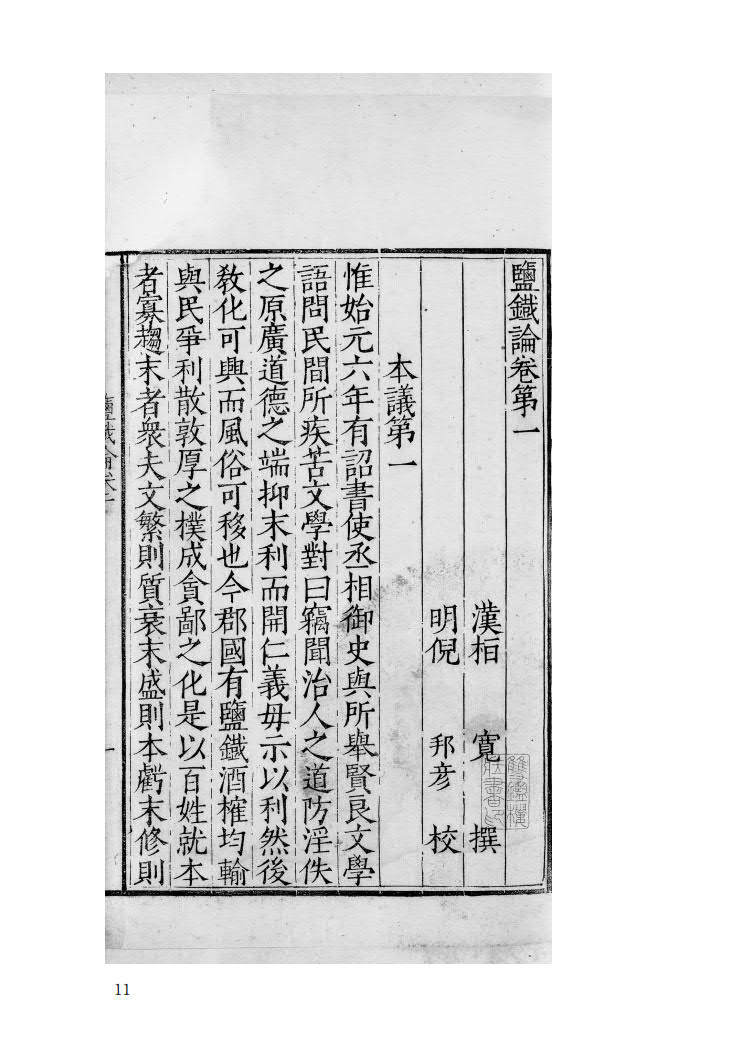 鹽鐡論卷第一
漢桓 寬 撰
明倪 邦彦 校
雙鑑樓
藏書印
本議第一
惟始元六年有詔書使丞相御史與所舉賢良文學
語問民間所疾苦文學對曰竊聞治人之道防淫佚
之原廣道德之端抑末利而開仁義毋示以利然後
教化可興而風俗可移也今郡國有鹽鐡酒榷均輸
與民爭利散敦厚之樸成貪鄙之化是以百姓就本
者寡趨末者衆夫文繁則質衰末盛則本虧末修則
11